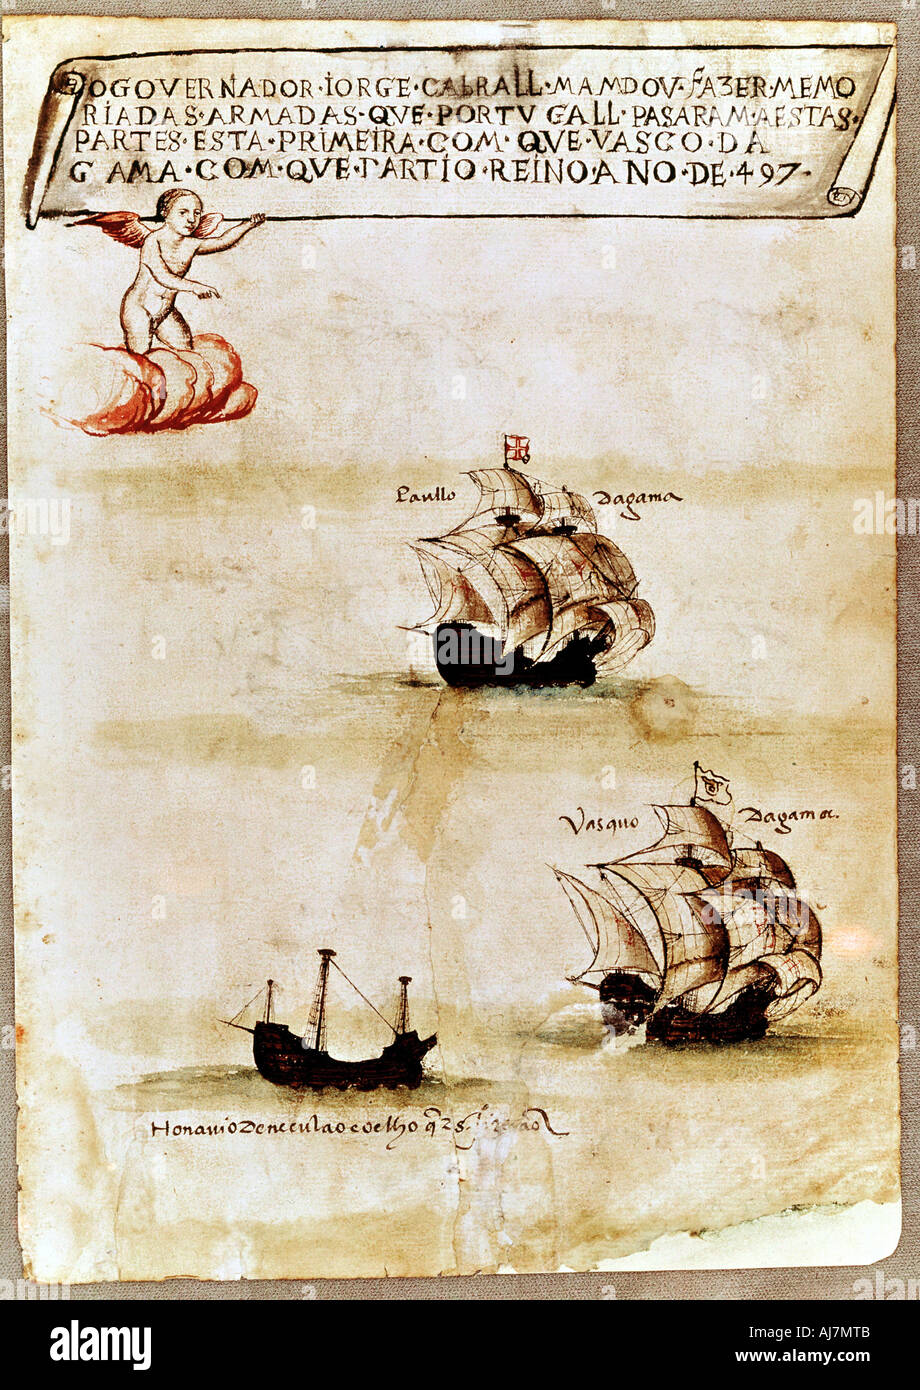 OGOVERNADOR·IORGE·CABRALL·MAMDOV·FAZER·MEMO
RIADAS·ARMADAS·QVE·PORTVGALL·PASARAM·AESTAS·
PARTES·ESTA·PRIMEIRA·COM·QVE·VASCO·DA
GAMA·COM·QVE·PARTIO·REINO·ANO·DE·497·
Paullo Dagama
Vasquo Dagama.
Honauio De coelho
alamy
Image ID: AJ7MTB
www.alamy.com